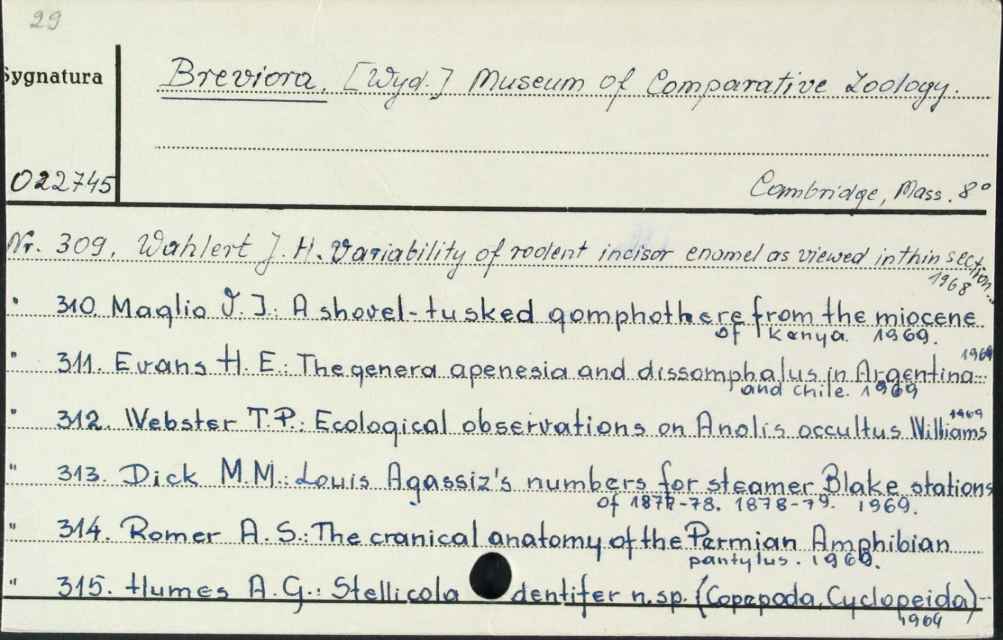 29
Sygnatura
Breviora. [Wyd.] Museum of Comparative Zoology.
022745
Cambridge, Mass. 8°
Nr. 309. Wahlert J. H. Variability of rodent incisor enamel as viewed in thin section.
1968
" 310. Maglio V. J.: A shovel-tusked gomphothere from the miocene
of Kenya. 1969.
" 311. Evans H. E.: The genera apenesia and dissomphalus in Argentina
1969
and Chile. 1969
" 312. Webster T.P.: Ecological observations on Anolis occultus Williams
1969
" 313. Dick M.M.: Louis Agassiz's numbers for steamer Blake stations
of 1877-78. 1878-79. 1969.
" 314. Romer A. S.: The cranical anatomy of the Permian Amphibian
pantylus. 1969.
" 315. Humes A. G.: Stellicola dentifer n.sp. (Copepoda, Cyclopeida)
1969